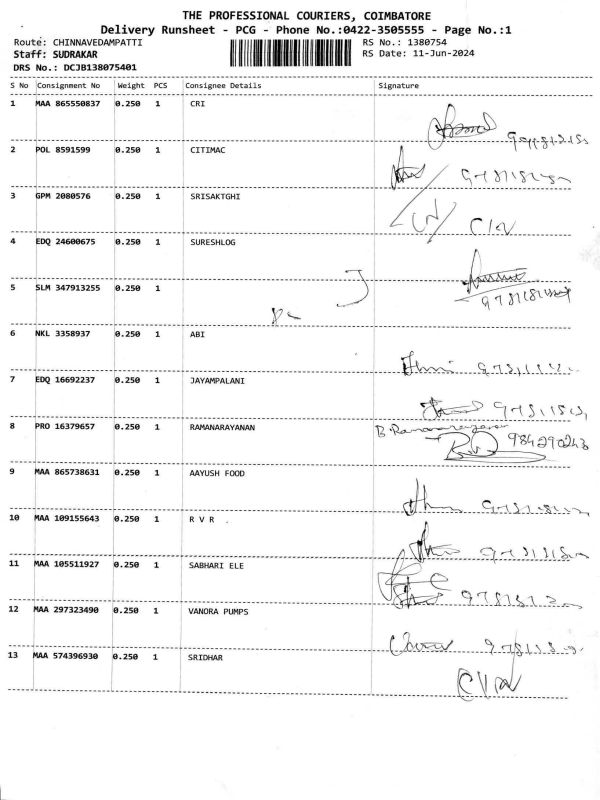 THE PROFESSIONAL COURIERS, COIMBATORE
Delivery Runsheet - PCG - Phone No.:0422-3505555 - Page No.:1
Route: CHINNAVEDAMPATTI RS No.: 1380754
Staff: SUDRAKAR RS Date: 11-Jun-2024
DRS No.: DCJB138075401
S No Consignment No Weight PCS Consignee Details Signature
1 MAA 865550837 0.250 1 CRI
2 POL 8591599 0.250 1 CITIMAC
3 GPM 2080576 0.250 1 SRISAKTGHI
4 EDQ 24600675 0.250 1 SURESHLOG
5 SLM 347913255 0.250 1
6 NKL 3358937 0.250 1 ABI
7 EDQ 16692237 0.250 1 JAYAMPALANI
8 PRO 16379657 0.250 1 RAMANARAYANAN B. Ramanarayanan
984290243
9 MAA 865738631 0.250 1 AAYUSH FOOD
10 MAA 109155643 0.250 1 R V R .
11 MAA 105511927 0.250 1 SABHARI ELE
12 MAA 297323490 0.250 1 VANORA PUMPS
13 MAA 574396930 0.250 1 SRIDHAR